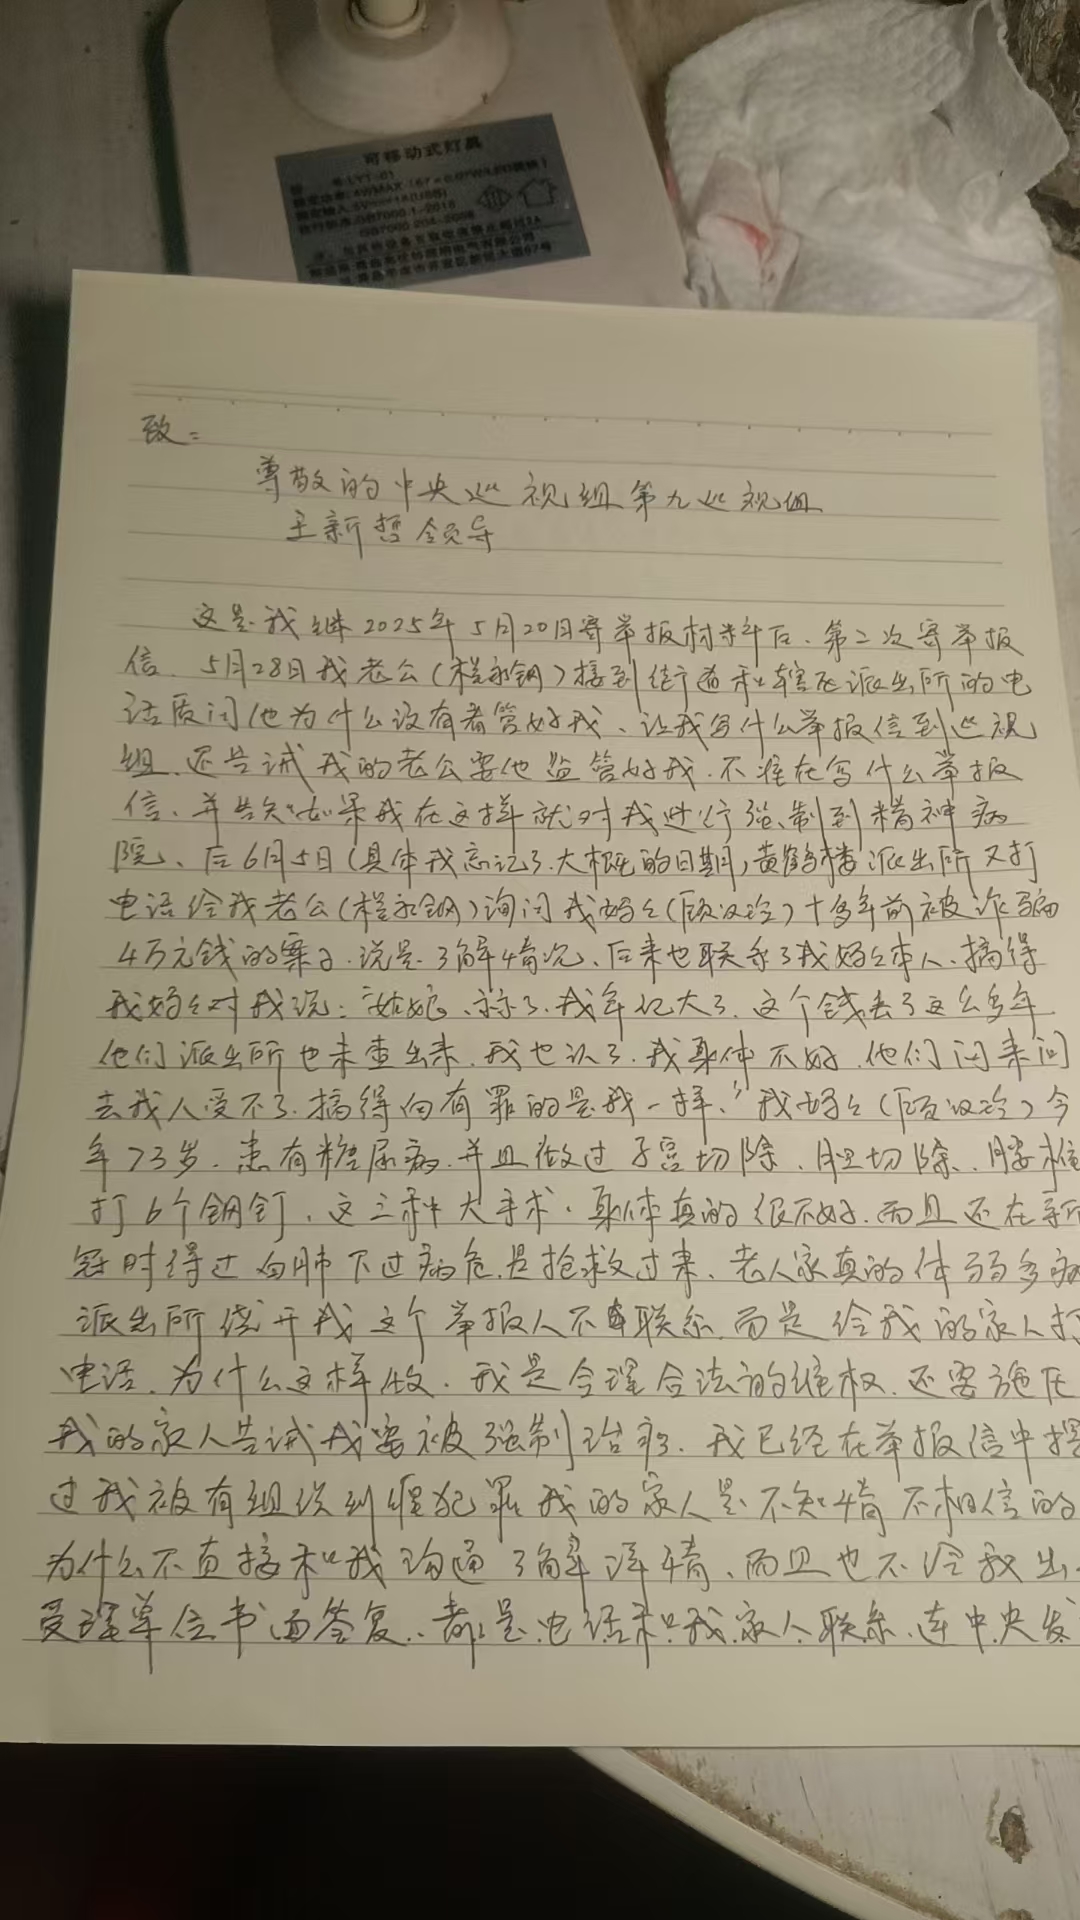 可移动式灯具
致：
尊敬的中央巡视组第九巡视组
王新哲领导
这是我继2025年5月20日寄举报材料后、第二次寄举报
信、5月28日我老公(程永钢)接到街道和辖区派出所的电
话质问他为什么没有看管好我、让我写什么举报信到巡视
组、还告诫我的老公要他监管好我、不准在写什么举报
信、并告知如果我在这样就对我进行强制到精神病
院、后6月5日(具体我忘记了、大概的日期)黄鹤楼派出所又打
电话给我老公(程永钢)询问我妈妈(汉玲)十多年前被诈骗
4万元钱的案子、说是了解情况、后来也联系了我妈妈本人、搞得
我妈妈对我说："姑娘、算了、我年纪大了、这个钱丢了这么多年
他们派出所也未查出来、我也认了、我身体不好、他们问来问
去我人受不了、搞得向有罪的是我一样、"我妈妈(汉玲)今
年73岁、患有糖尿病、并且做过子宫切除、胆切除、腰椎
打6个钢钉、这三种大手术、身体真的很不好、而且还在新
冠时得过白肺下过病危是抢救过来、老人家真的体弱多病
派出所绕开我这个举报人不联系、而是给我的家人打
电话、为什么这样做、我是合理合法的维权、还要施压
我的家人告诫我要被强制治疗、我已经在举报信中提
过我被有组织犯罪、我的家人是不知情不相信的
为什么不直接和我沟通了解详情、而且也不给我出
受理单位书面答复、都是电话和我家人联系、连中央发